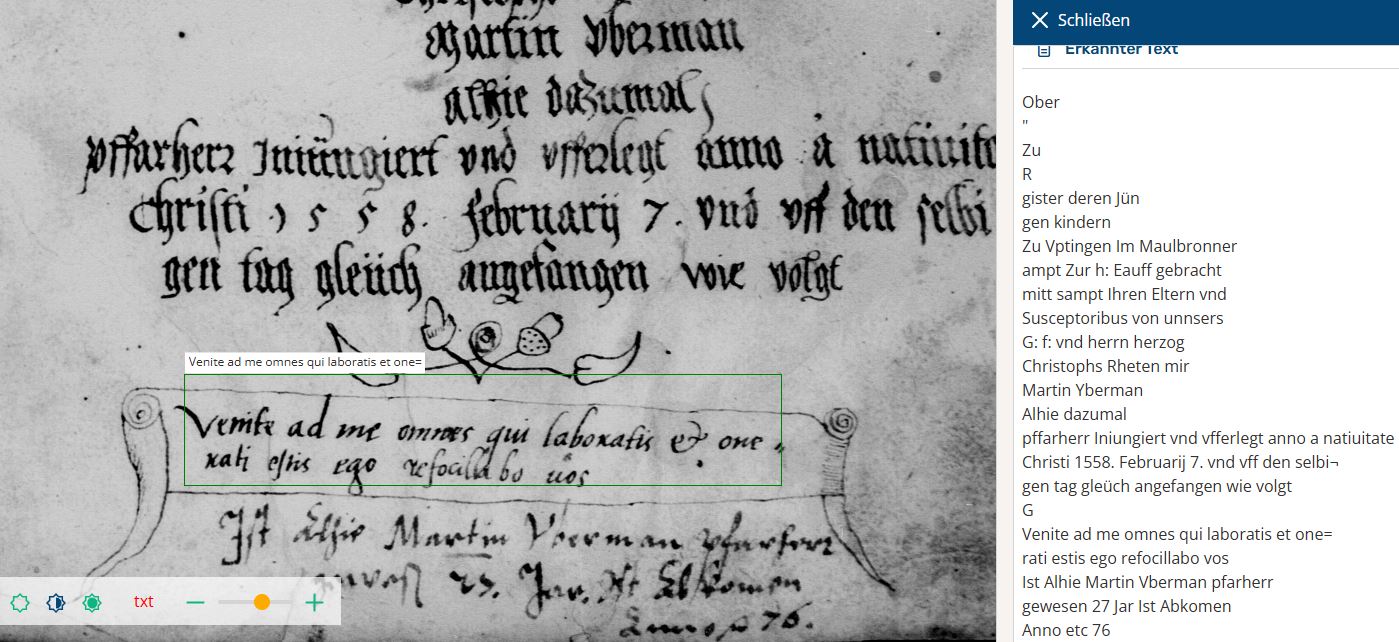 Martin Vberman
alhie dazumal
pffarherr Iniüngiert vnd vfferlegt anno a natiuita
Christi 1558. Februarij 7. vnd vff den selbi
gen tag gleüch angefangen wie volgt
Venite ad me omnes qui laboratis et one=
Venite ad me omnes qui laboratis & one=
rati estis ego refocillabo uos
Ist Alhie Martin Vberman pfarherr
gewesen 27. Jar. Ist Abkomen
Anno 76.
txt
Schließen
Erkannter Text
Ober
"
Zu
R
gister deren Jün
gen kindern
Zu Vptingen Im Maulbronner
ampt Zur h: Eauff gebracht
mitt sampt Ihren Eltern vnd
Susceptoribus von unnsers
G: f: vnd herrn herzog
Christophs Rheten mir
Martin Yberman
Alhie dazumal
pffarherr Iniungiert vnd vfferlegt anno a natiuitate
Christi 1558. Februarij 7. vnd vff den selbi¬
gen tag gleüch angefangen wie volgt
G
Venite ad me omnes qui laboratis et one=
rati estis ego refocillabo vos
Ist Alhie Martin Vberman pfarherr
gewesen 27 Jar Ist Abkomen
Anno etc 76